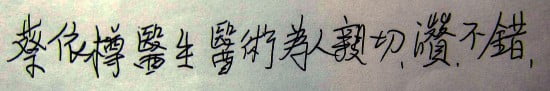 蔡依樽醫生醫術為人親切,讚.不錯,